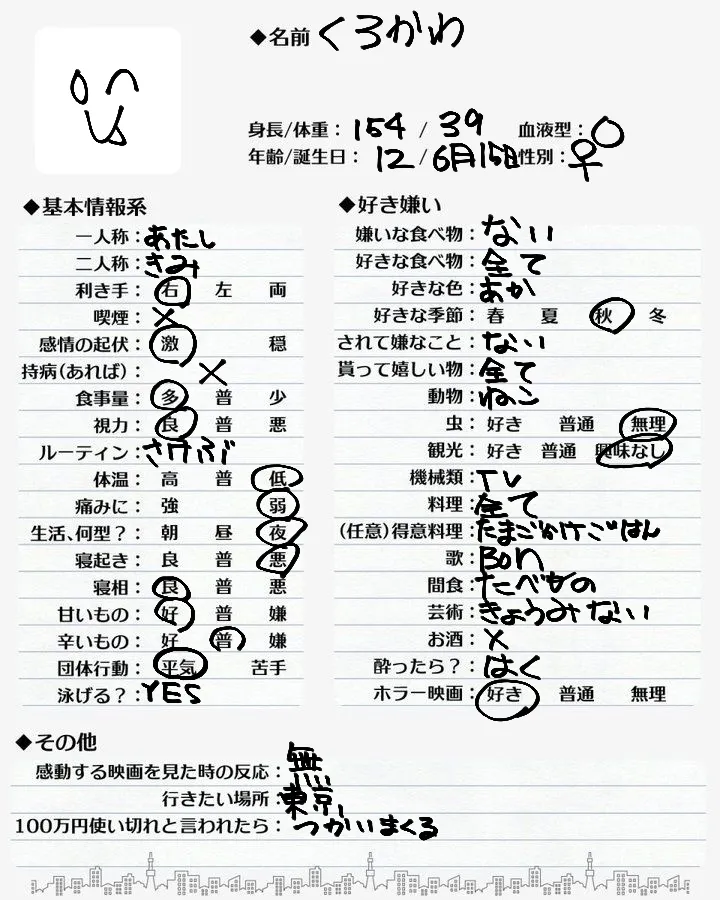 ◆名前 くろかわ
身長/体重： 154 / 39 血液型：O
年齢/誕生日： 12 / 6月15日 性別：♀
◆基本情報系
一人称：あたし
二人称：きみ
利き手： 右 左 両
喫煙：×
感情の起伏： 激 穏
持病(あれば)： ×
食事量： 多 普 少
視力： 良 普 悪
ルーティン：さけぶ
体温： 高 普 低
痛みに： 強 弱
生活、何型？： 朝 昼 夜
寝起き： 良 普 悪
寝相： 良 普 悪
甘いもの： 好 普 嫌
辛いもの： 好 普 嫌
団体行動： 平気 苦手
泳げる？：YES
◆好き嫌い
嫌いな食べ物：ない
好きな食べ物：全て
好きな色：あか
好きな季節： 春 夏 秋 冬
されて嫌なこと：ない
貰って嬉しい物：全て
動物：ねこ
虫： 好き 普通 無理
観光： 好き 普通 興味なし
機械類：TV
料理：全て
(任意)得意料理：たまごかけごはん
歌：Bon
間食：たべもの
芸術：きょうみない
お酒：×
酔ったら？：はく
ホラー映画： 好き 普通 無理
◆その他
感動する映画を見た時の反応：無
行きたい場所：東京
100万円使い切れと言われたら：つかいまくる